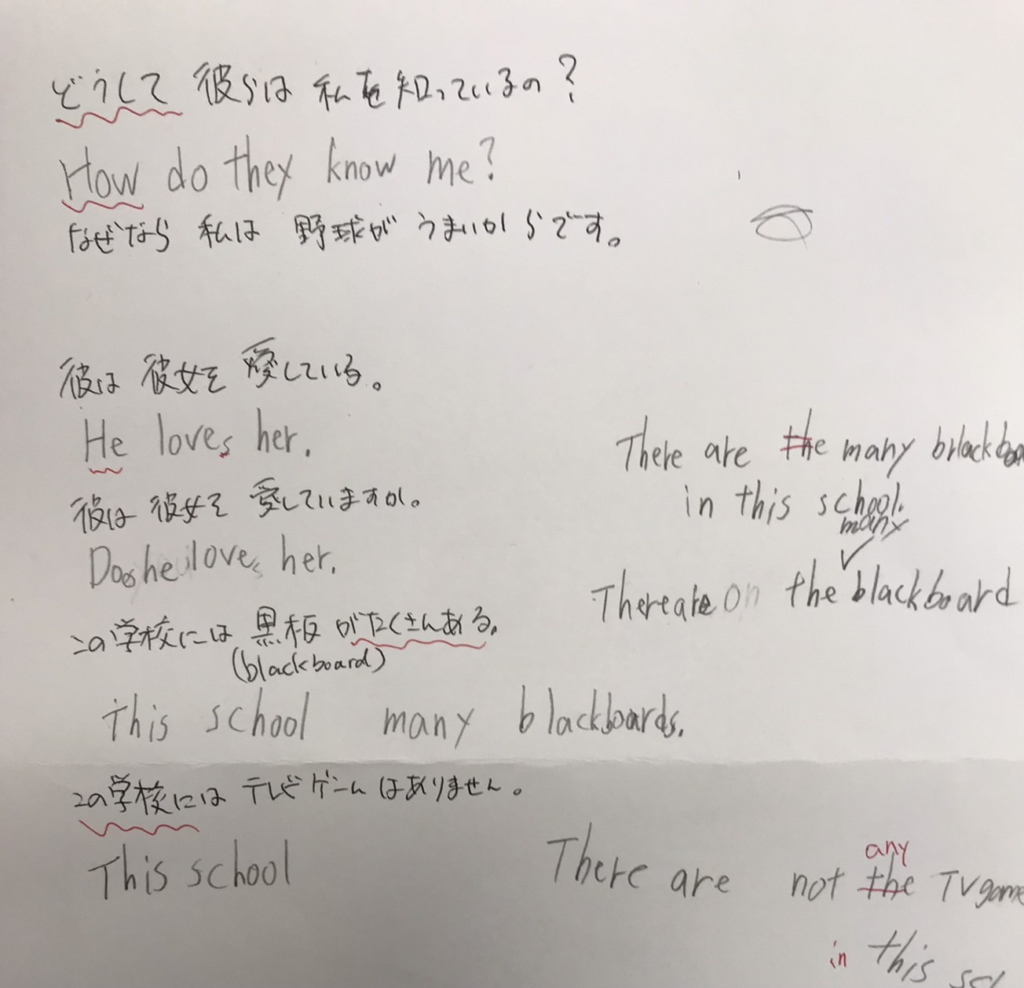 どうして 彼らは 私を知っているの？
How do they know me?
なぜなら 私は 野球が うまいからです。
彼は 彼女を 愛している。
He loves her.
彼は 彼女を 愛していますか。
Does he love her.
There are the many blackboa
in this school.
many
There are on the blackboard
この学校には 黒板 がたくさんある。
(blackboard)
this school many blackboards.
この学校には テレビゲームはありません。
This school
any
There are not the TV game
in this sch